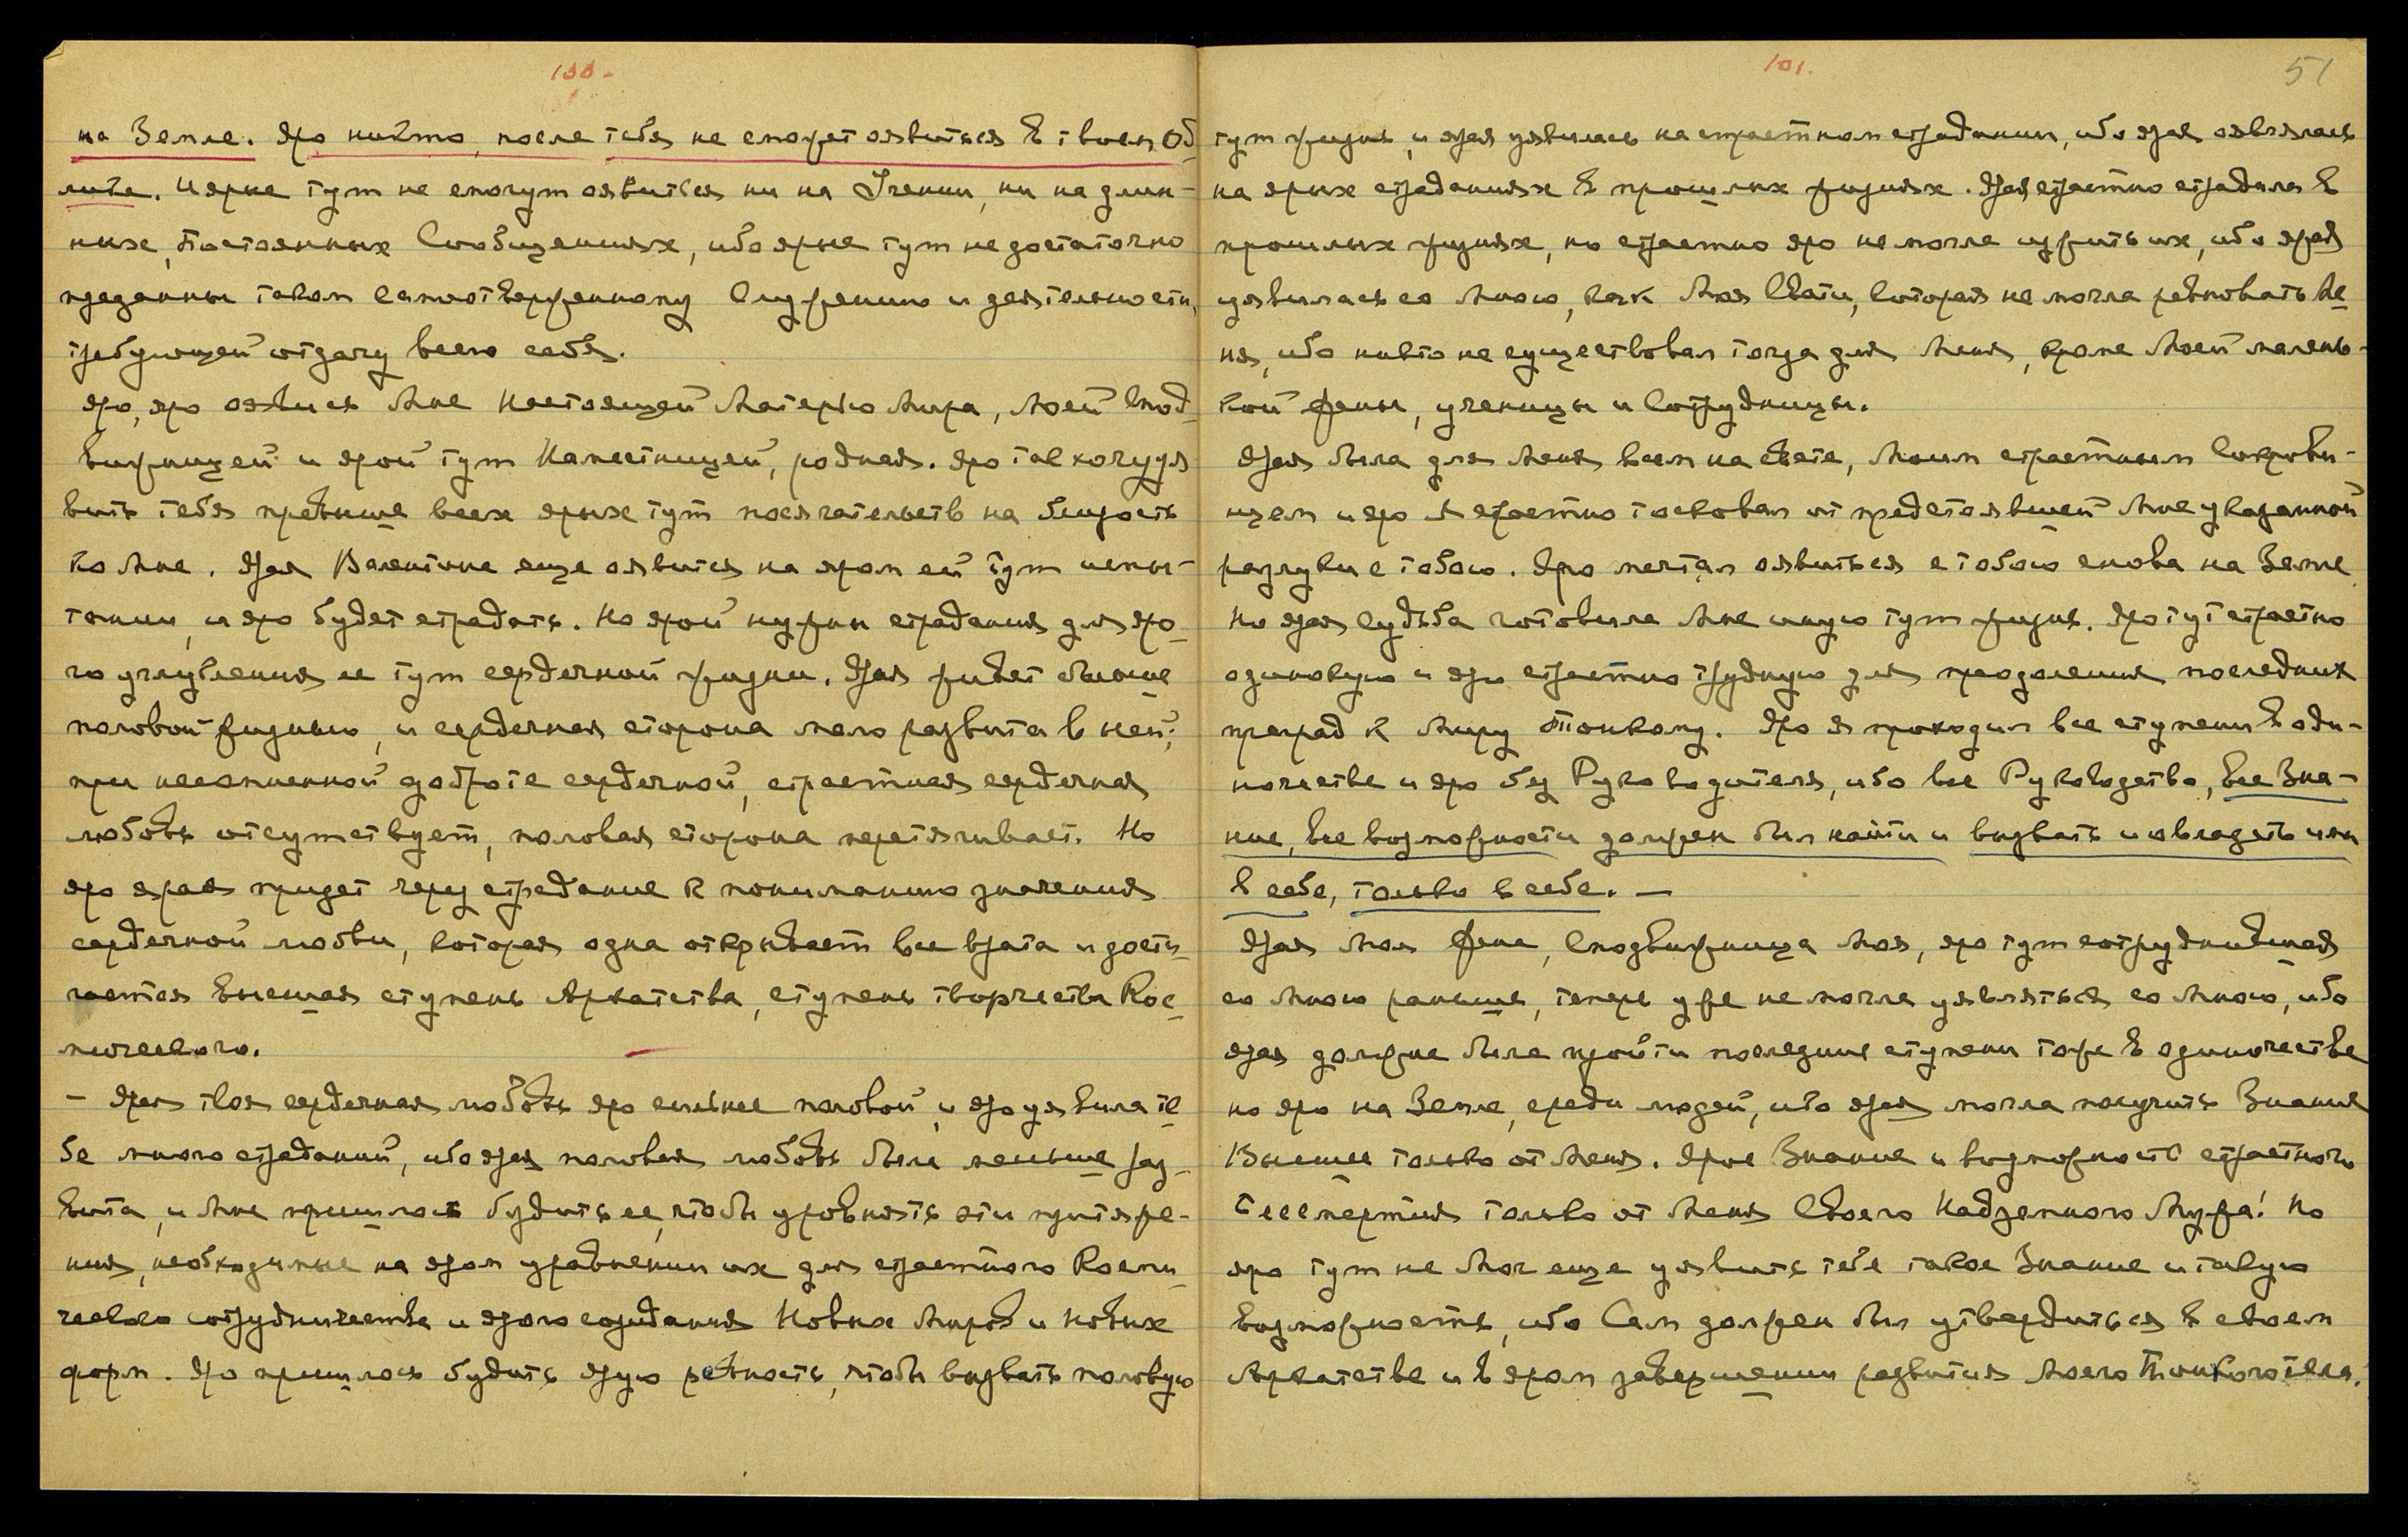 100.
на Земле. Яро никто, после тебя не сможет оявиться в твоем Об-
лике. И ярые тут не смогут оявиться ни на Учении, ни на длин-
ных, Постоянных Сообщениях, ибо ярые тут не достаточно
преданны такому самоотверженному Служению и деятельности,
требующей отдачу всего себя.
Яро, яро оявись Мне Настоящей Матерью Мира, Моей Спод-
вижницей и ярой тут Наместницей, родная. Яро так хочу уя-
вить тебя превыше всех ярых тут посягательств на близость
ко Мне. Ярая Валентина еще оявится на яром ей тут испы-
тании, и яро будет страдать. Но ярой нужны страдания для яро-
го углубления ее тут сердечной жизни. Ярая живет больше
половой жизнью, и сердечная сторона мало развита в ней;
при несомненной доброте сердечной, страстная сердечная
любовь отсутствует, половая сторона перетягивает. Но
яро ярая придет через страдание к пониманию значения
сердечной любви, которая одна открывает все врата и дости-
гается высшая ступень Архатства, ступень творчества Кос-
мического.
- Ярая твоя сердечная любовь яро сильнее половой, и яро уявила те-
бе много страданий, ибо ярая половая любовь была меньше раз-
вита, и Мне пришлось будить ее, чтобы уровнять эти притяже-
ния, необходимые на яром уравнении их для страстного Косми-
ческого сотрудничества и ярого созидания Новых Миров и новых
форм. Яро пришлось будить ярую ревность, чтобы вызвать половую
101.
51
тут жизнь, и ярая уявилась на страстном страдании, ибо ярая оявлялась
на ярых страданиях в прошлых жизнях. Ярая страстно страдала в
прошлых жизнях, но страстно яро не могла изжить их, ибо ярая
уявилась со Мною, как Моя Свати, которая не могла ревновать Ме-
ня, ибо никто не существовал тогда для Меня, кроме Моей малень-
кой жены, ученицы и сотрудницы.
Ярая была для Меня всем на свете, Моим страстным Сокрови-
щем и яро Я страстно тосковал от предстоявшей Мне указанной
разлуки с тобою. Яро мечтал оявиться с тобою снова на Земле,
но ярая судьба готовила Мне иную тут жизнь. Яро тут страстно
одинокую и яро страстно трудную для преодоления последних
преград к Миру Тонкому. Яро Я проходил все ступени в оди-
ночестве и яро без Руководителя, ибо все Руководство, все Зна-
ние, все возможности должен был найти и вызвать и овладеть ими
в себе, только в себе. —
Ярая Моя Жена, Сподвижница Моя, яро тут сотрудничавшая
со Мною раньше, теперь уже не могла уявляться со Мною, ибо
ярая должна была пройти последние ступени тоже в одиночестве
но яро на Земле, среди людей, ибо ярая могла получить Знания
Высшие только от Меня. Ярое Знание и возможность страстного
Бессмертия только от Меня Своего Надземного Мужа! Но
яро тут не Мог еще уявить тебе такое Знание и такую
возможность, ибо Сам должен был утвердиться в своем
Архатстве и в яром завершении развития Моего Тонкого тела.